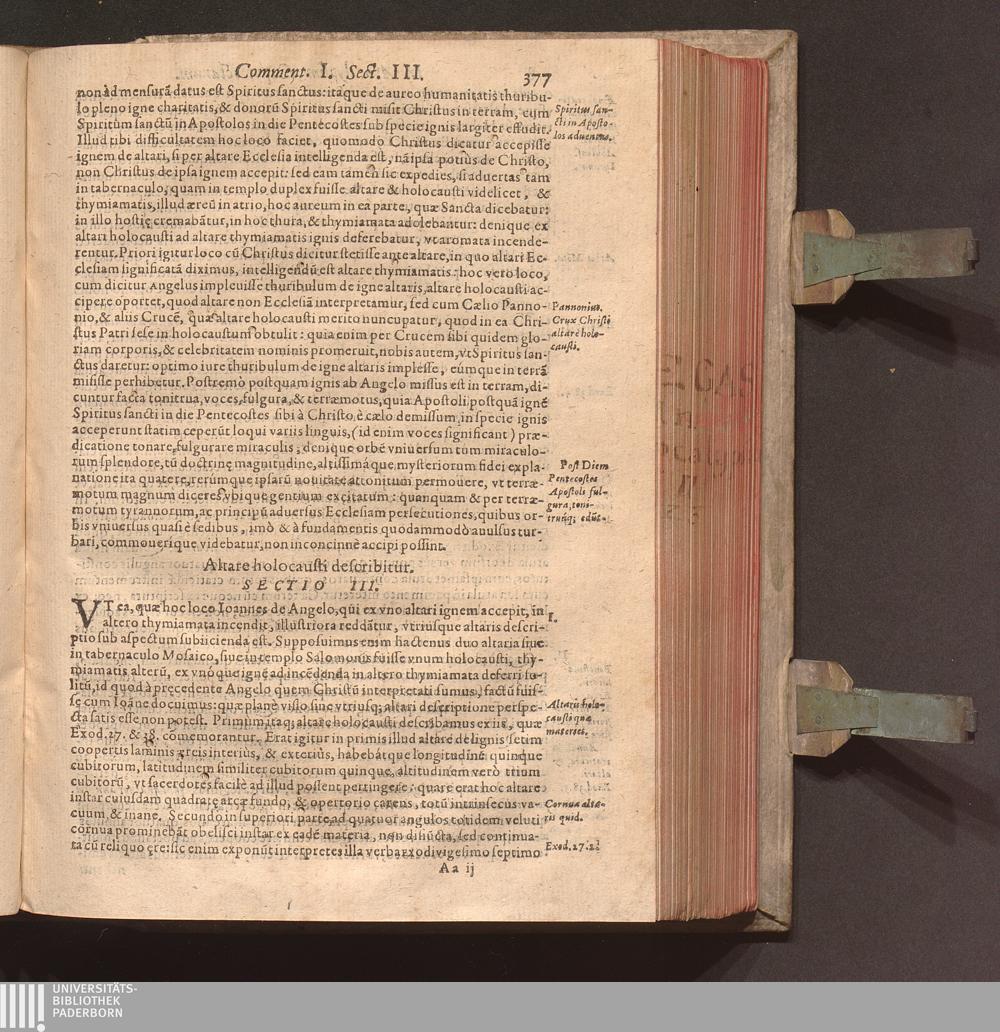 Comment. I. Sect. III. 377
non ad mensurā datus est Spiritus sanctus: itaque de aureo humanitatis thuribu-
lo pleno igne charitatis, & donorū Spiritus sancti misit Christus in terram, cum
Spiritum sanctū in Apostolos in die Pentecostes sub specie ignis largiter effudit.
Spiritus san-
cti in Aposto-
los aduentus.
Illud tibi difficultatem hoc loco faciet, quomodo Christus dicatur accepisse
ignem de altari, si per altare Ecclesia intelligenda est, nā ipsa potius de Christo,
non Christus de ipsa ignem accepit: sed eam tamen sic expedies, si aduertas tam
in tabernaculo, quam in templo duplex fuisse altare & holocausti videlicet, &
thymiamatis, illud æreū in atrio, hoc aureum in ea parte, quæ Sancta dicebatur:
in illo hostię cremabātur, in hoc thura, & thymiamata adolebantur: denique ex
altari holocausti ad altare thymiamatis ignis deferebatur, vt aromata incende-
rentur. Priori igitur loco cū Christus dicitur stetisse ante altare, in quo altari Ec-
clesiam significatā diximus, intelligendū est altare thymiamatis: hoc vero loco,
cum dicitur Angelus impleuisse thuribulum de igne altaris, altare holocausti ac-
cipere oportet, quod altare non Ecclesiā interpretamur, sed cum Cælio Panno-
nio, & aliis Crucē, quæ altare holocausti merito nuncupatur, quod in ea Chri-
stus Patri sese in holocaustum obtulit: quia enim per Crucem sibi quidem glo-
riam corporis, & celebritatem nominis promeruit, nobis autem, vt Spiritus san-
Pannonius.
Crux Christi
altare holo-
causti.
ctus daretur: optimo iure thuribulum de igne altaris implesse, eumque in terrā
misisse perhibetur. Postremò postquam ignis ab Angelo missus est in terram, di-
cuntur facta tonitrua, voces, fulgura, & terræmotus, quia Apostoli postquā ignē
Spiritus sancti in die Pentecostes sibi à Christo è cælo demissum, in specie ignis
acceperunt statim ceperūt loqui variis linguis, (id enim voces significant) præ-
dicatione tonare, fulgurare miraculis, denique orbē vniuersum tum miraculo-
rum splendore, tū doctrinę magnitudine, altissimáque mysteriorum fidei expla-
natione ita quatere, rerumque ipsarū nouitate attonitum permouere, vt terræ-
motum magnum diceres vbique gentium excitatum: quanquam & per terræ-
motum tyrannorum, ac principū aduersus Ecclesiam persecutiones, quibus or-
bis vniuersus quasi è sedibus, imò & à fundamentis quodammodò auulsus tur-
bari, commouerique videbatur, non inconcinnè accipi possint.
Post Diem
Pentecostes
Apostoli ful-
gura, toni-
truáq; edūt.
Altare holocausti describitur.
SECTIO III.
VT ea, quæ hoc loco Ioannes de Angelo, qui ex vno altari ignem accepit, in
altero thymiamata incendit, illustriora reddātur, vtriusque altaris descri-
I.
ptio sub aspectum subiicienda est. Supposuimus enim hactenus duo altaria siue
in tabernaculo Mosaico, siue in templo Salomonis fuisse vnum holocausti, thy-
miamatis alterū, ex vnóque ignē ad incēdenda in altero thymiamata deferri so-
litū, id quod à precedente Angelo quem Christū interpretati sumus, factū fuis-
se cum Ioāne docuimus: quæ planè visio sine vtriusq; altari descriptione perspe-
cta satis esse non potest. Primum itaq; altare holocausti describamus ex iis, quæ
Exod. 27. & 38. cōmemorantur. Erat igitur in primis illud altare de lignis setim
Altaris holo-
causti quæ
materies.
coopertis laminis æreis interius, & exterius, habebátque longitudinē quinque
cubitorum, latitudinem similiter cubitorum quinque, altitudinem verò trium
cubitorū, vt sacerdotes facilè ad illud possent pertingere: quare erat hoc altare
instar cuiusdam quadratę arcæ fundo, & opertorio carens, totū intrinsecus va-
cuum, & inane. Secundo in superiori parte ad quatuor angulos totidem veluti
Cornua alta-
ris quid.
cornua prominebāt obelisci instar ex eadē materia, non disiūcta, sed continua-
ta cū reliquo: ęreisse enim exponūt interpretes illa verba ex o divigesimo septimo
Exod. 27. 2
Aa ij
UNIVERSITÄTS-
BIBLIOTHEK
PADERBORN